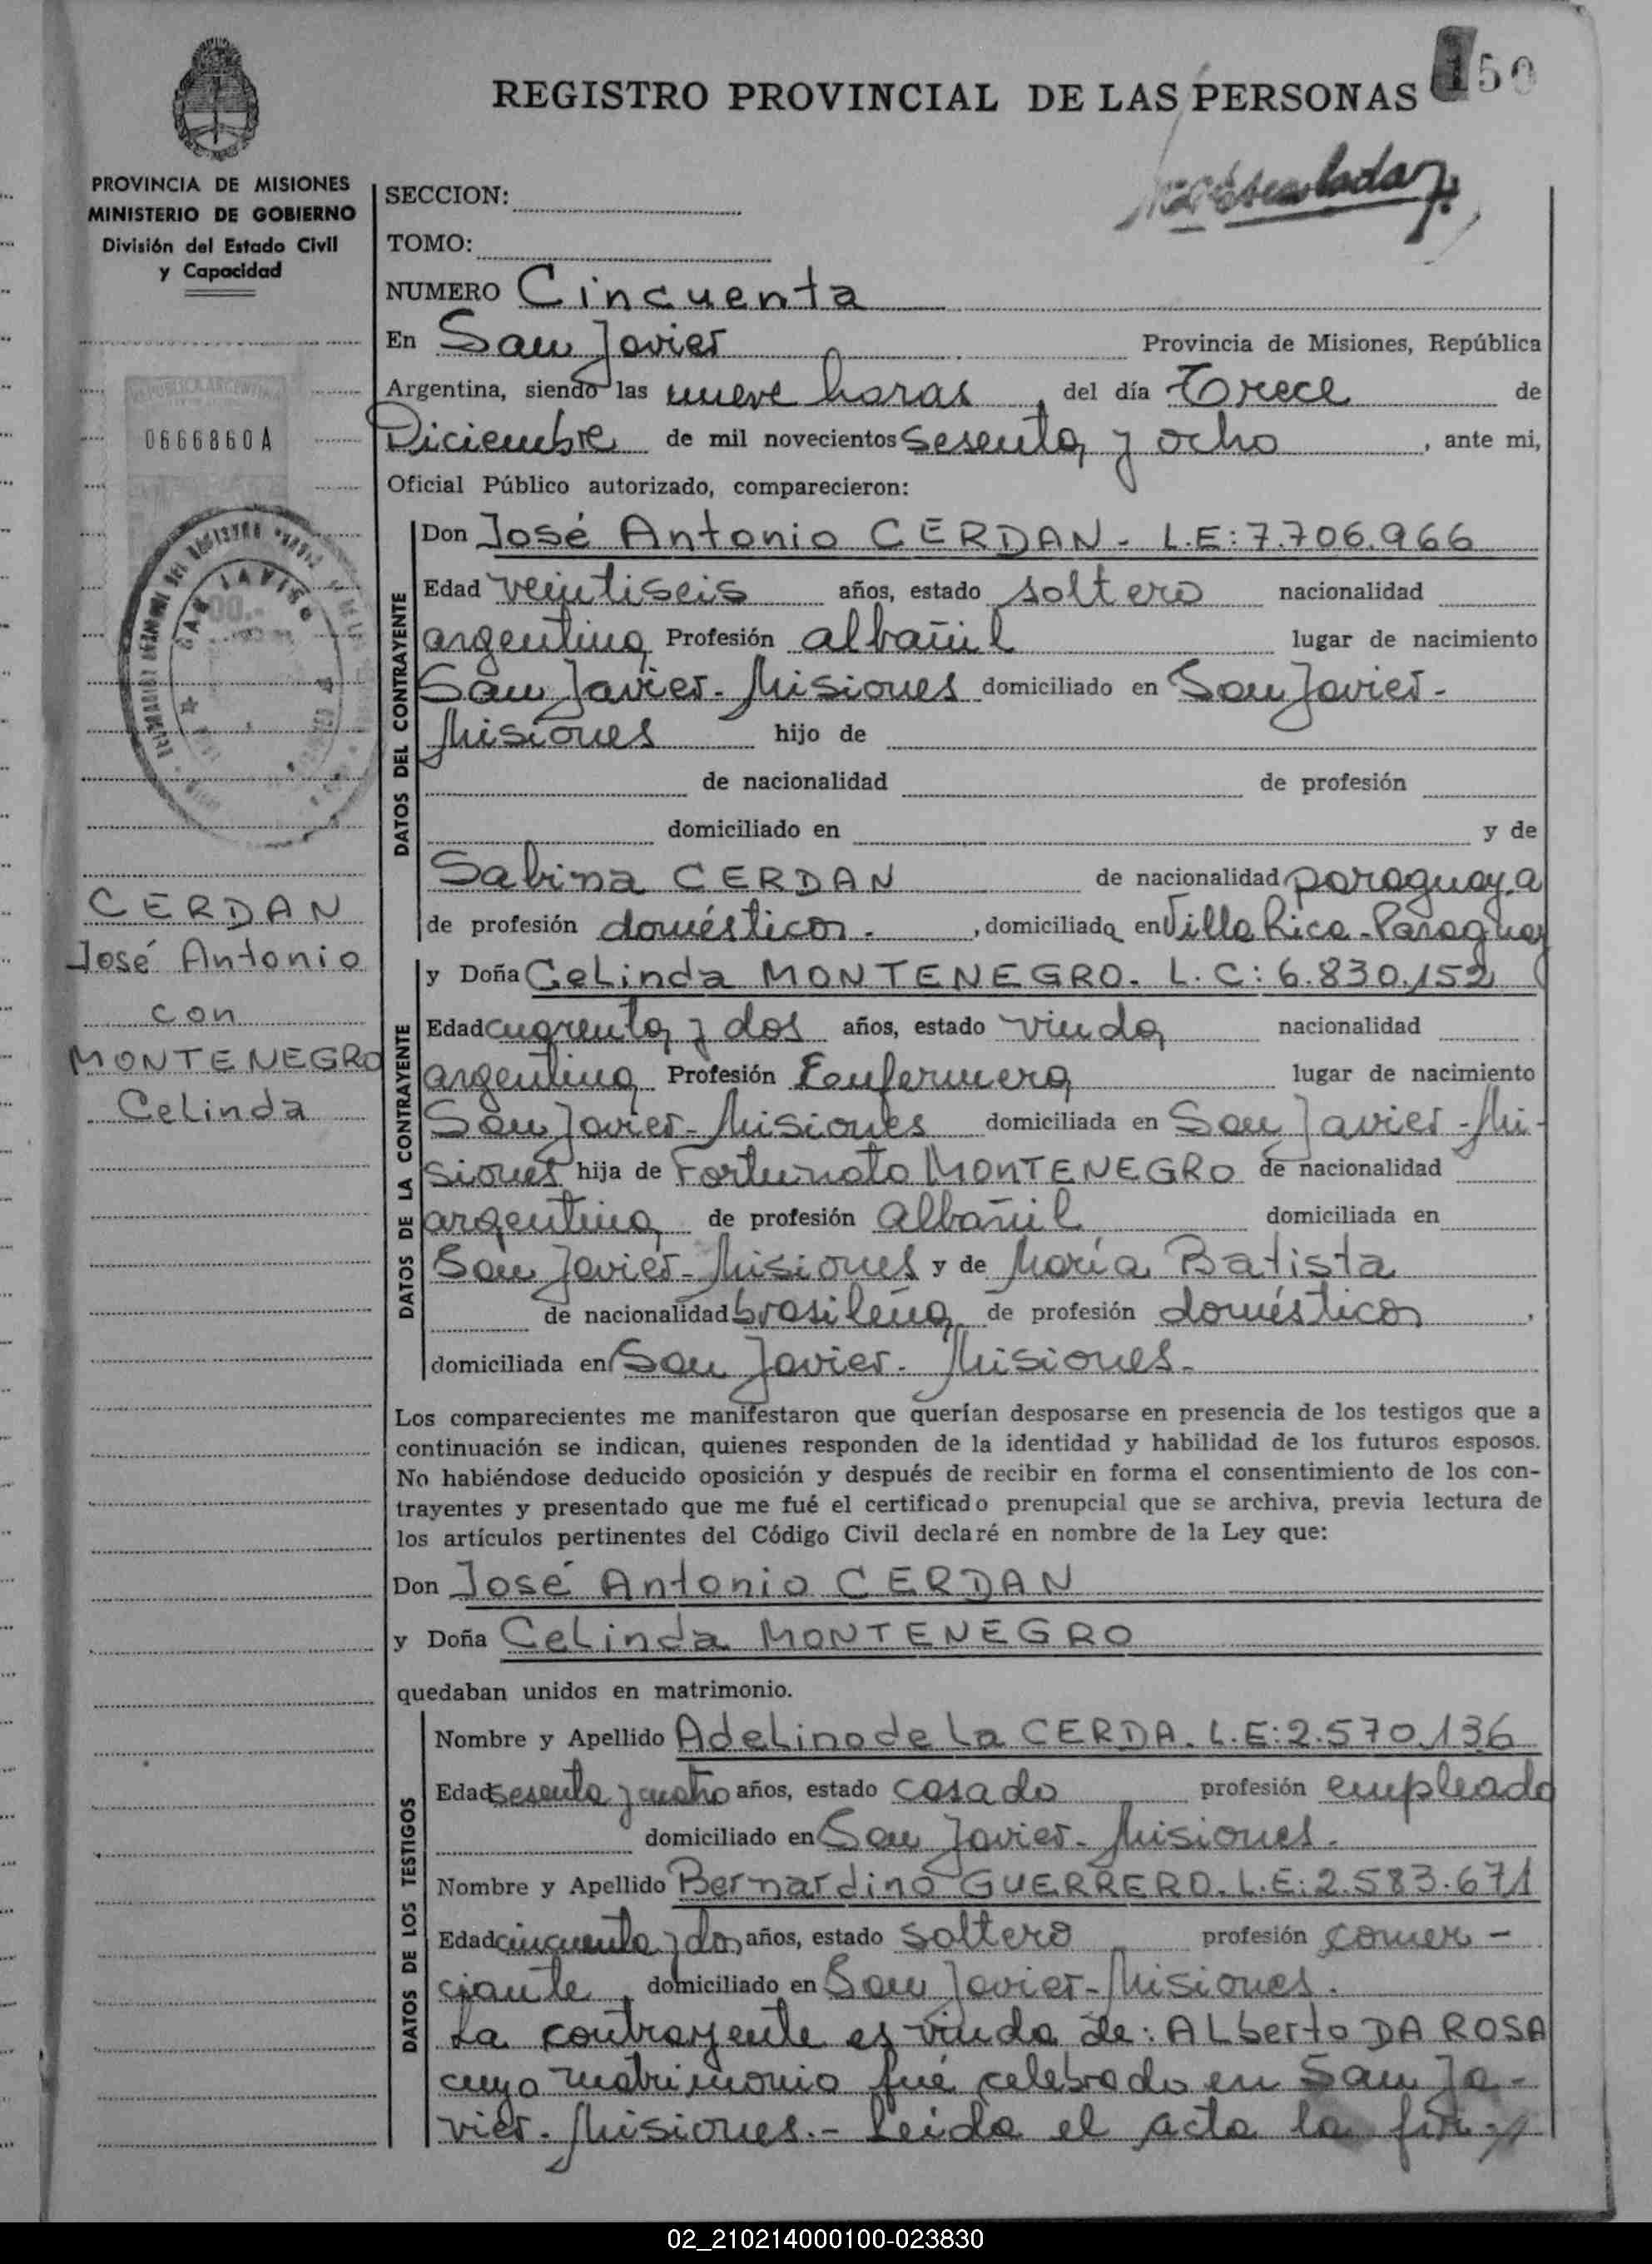 REGISTRO PROVINCIAL DE LAS PERSONAS
150
PROVINCIA DE MISIONES
MINISTERIO DE GOBIERNO
División del Estado Civil
y Capacidad
SECCION:
TOMO:
NUMERO Cincuenta
En San Javier Provincia de Misiones, República
Argentina, siendo las nueve horas, del día Trece de
Diciembre de mil novecientos sesenta y ocho, ante mi,
Oficial Público autorizado, comparecieron:
0666860A
CERDAN
José Antonio
con
MONTENEGRO
Celinda
DATOS DEL CONTRAYENTE
Don José Antonio CERDAN - L.E: 7.706.966
Edad veintiseis años, estado soltero nacionalidad
argentina Profesión albañil lugar de nacimiento
San Javier - Misiones domiciliado en San Javier -
Misiones hijo de
de nacionalidad de profesión
domiciliado en y de
Sabina CERDAN de nacionalidad paraguaya
de profesión domésticos. , domiciliada en Villa Rica - Paraguay
DATOS DE LA CONTRAYENTE
y Doña Celinda MONTENEGRO. L.C: 6.830.152
Edad cuarenta y dos años, estado viuda nacionalidad
argentina Profesión Enfermera lugar de nacimiento
San Javier - Misiones domiciliada en San Javier - Mi-
siones hija de Fortunato MONTENEGRO de nacionalidad
argentina de profesión albañil domiciliada en
San Javier - Misiones y de María Batista
de nacionalidad brasileña de profesión domésticos,
domiciliada en San Javier - Misiones -
Los comparecientes me manifestaron que querían desposarse en presencia de los testigos que a
continuación se indican, quienes responden de la identidad y habilidad de los futuros esposos.
No habiéndose deducido oposición y después de recibir en forma el consentimiento de los con-
trayentes y presentado que me fué el certificado prenupcial que se archiva, previa lectura de
los artículos pertinentes del Código Civil declaré en nombre de la Ley que:
Don José Antonio CERDAN
y Doña Celinda MONTENEGRO
quedaban unidos en matrimonio.
DATOS DE LOS TESTIGOS
Nombre y Apellido Adelino de la CERDA. L.E: 2.570.136
Edad sesenta y cuatro años, estado casado profesión empleado
domiciliado en San Javier - Misiones.
Nombre y Apellido Bernardino GUERRERO. L.E: 2.583.671
Edad cincuenta y dos años, estado soltero profesión comer-
ciante, domiciliado en San Javier - Misiones.
La contrayente es viuda de: ALberto DA ROSA
cuyo matrimonio fué celebrado en San Ja-
vier - Misiones. - Leída el acta la
02_210214000100-023830